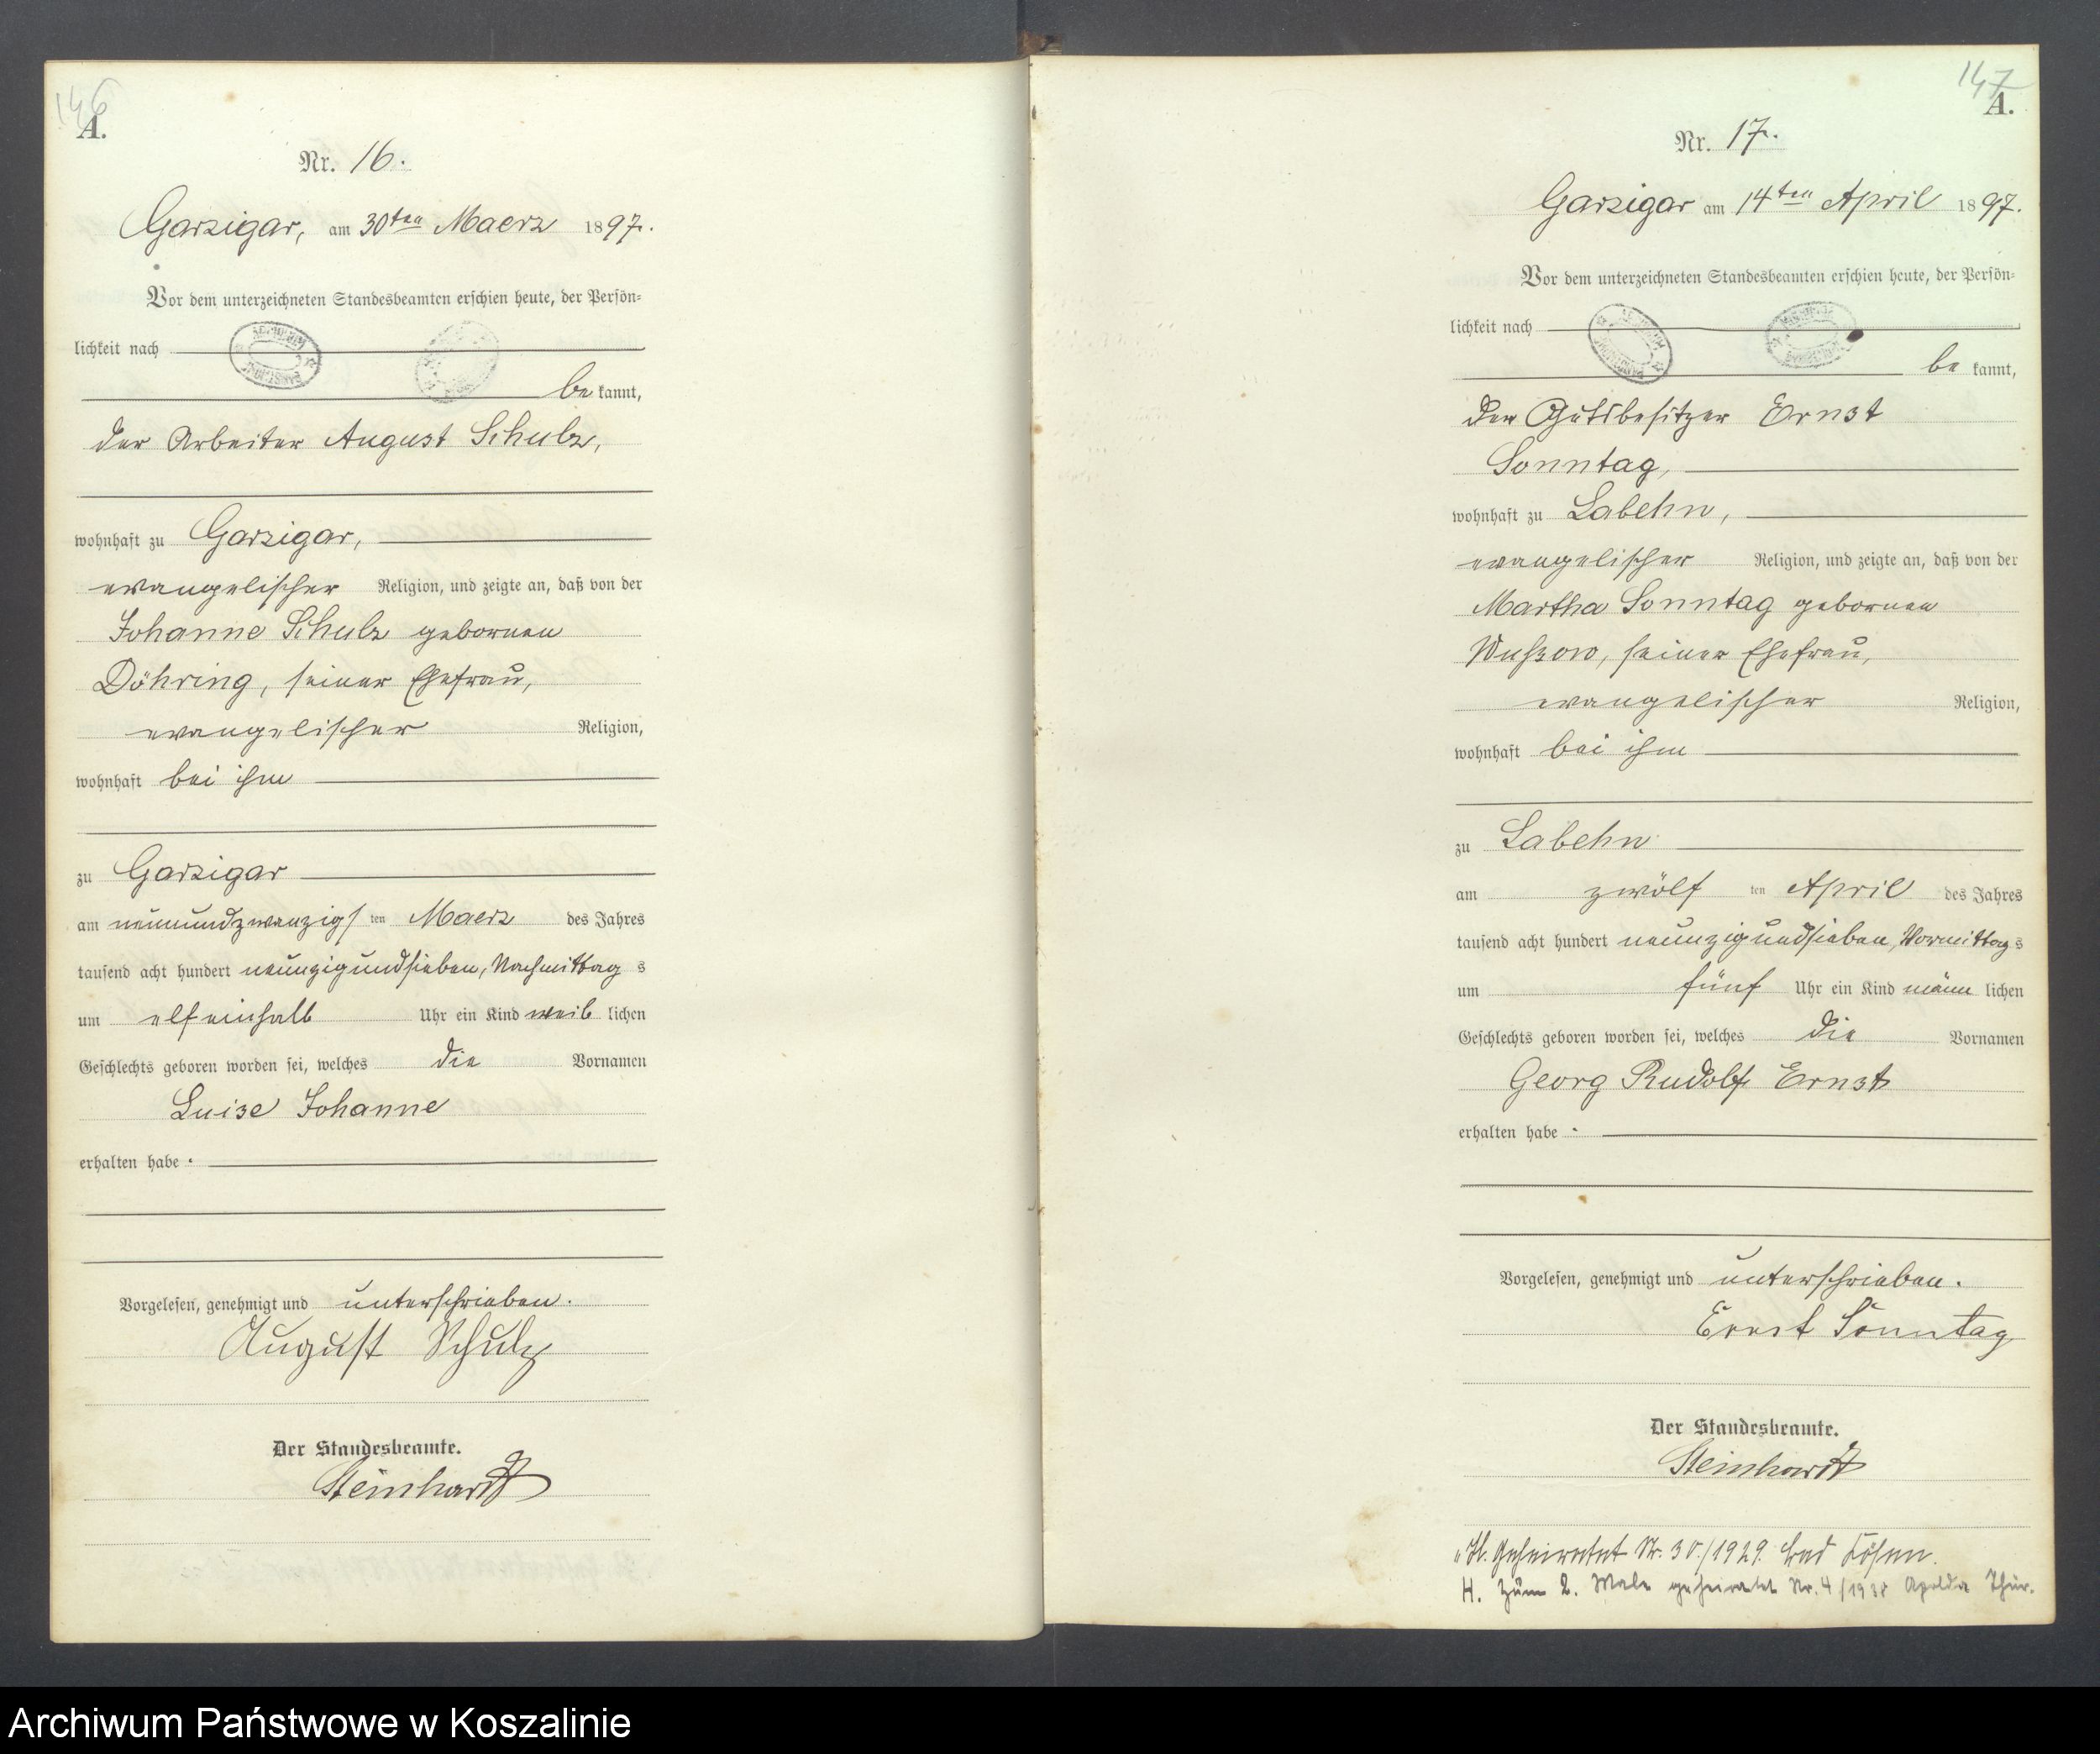 146
A.
Nr. 16.
Garzigar, am 30ten Maerz 1897.
Vor dem unterzeichneten Standesbeamten erschien heute, der Persön-
lichkeit nach
be kannt,
der Arbeiter August Schulz,
wohnhaft zu Garzigar,
evangelischer Religion, und zeigte an, daß von der
Johanne Schulz gebornen
Döhring, seiner Ehefrau,
evangelischer Religion,
wohnhaft bei ihm
zu Garzigar
am neunundzwanzigsten Maerz des Jahres
tausend acht hundert neunzigundsieben, Nachmittag s
um elfeinhalb Uhr ein Kind weib lichen
Geschlechts geboren worden sei, welches die Vornamen
Luise Johanne
erhalten habe.
Vorgelesen, genehmigt und unterschrieben.
August Schulz
Der Standesbeamte.
Steinhardt
147
A.
Nr. 17.
Garzigar am 14ten April 1897.
Vor dem unterzeichneten Standesbeamten erschien heute, der Persön-
lichkeit nach
be kannt,
der Gutsbesitzer Ernst
Sonntag,
wohnhaft zu Labehn,
evangelischer Religion, und zeigte an, daß von der
Martha Sonntag gebornen
Wußow, seiner Ehefrau,
evangelischer Religion,
wohnhaft bei ihm
zu Labehn
am zwölf ten April des Jahres
tausend acht hundert neunzigundsieben, Vormittag s
um fünf Uhr ein Kind männ lichen
Geschlechts geboren worden sei, welches die Vornamen
Georg Rudolf Ernst
erhalten habe.
Vorgelesen, genehmigt und unterschrieben.
Ernst Sonntag
Der Standesbeamte.
Steinhardt
H. Geheiratet Nr. 30/1929 Bad Kösen.
H. Zum 2. Male geheiratet Nr. 4/1938 Apolda Thür.
Archiwum Państwowe w Koszalinie